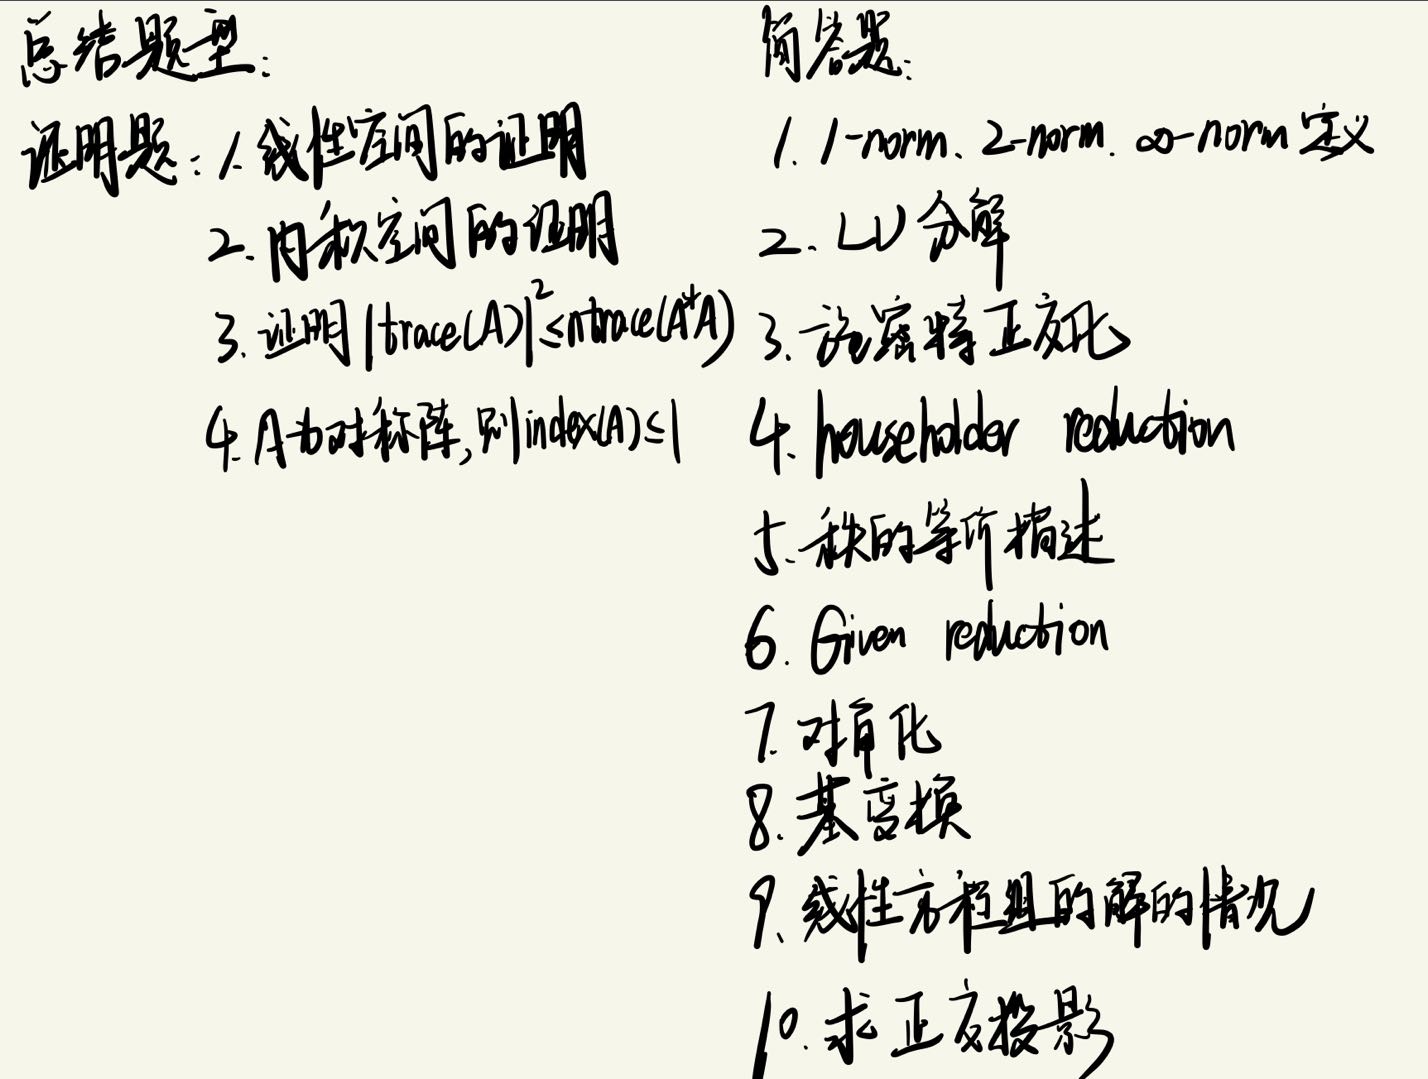 总结题型:
证明题: 1. 线性空间的证明
2. 内积空间的证明
3. 证明|trace(A)|²≤ntrace(A*A)
4. A为对称阵,则index(A)≤1
简答题:
1. 1-norm、2-norm、∞-norm定义
2. LU分解
3. 施密特正交化
4. householder reduction
5. 秩的等价描述
6. Given reduction
7. 对角化
8. 基变换
9、线性方程组的解的情况
10. 求正交投影